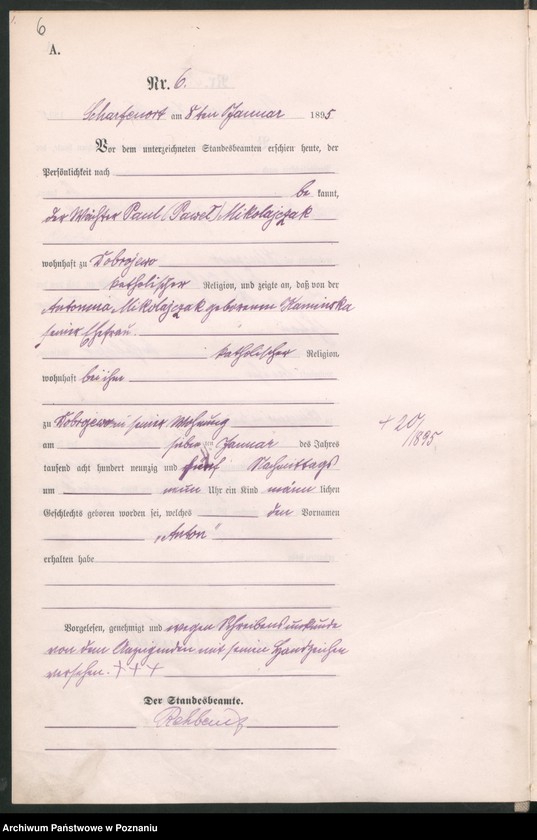 6
A.
Nr. 6.
Scharfenort am 8ten Januar 1895
Vor dem unterzeichneten Standesbeamten erschien heute, der
Persönlichkeit nach
be kannt,
der Wächter Paul (Paweł) Mikolajczak
wohnhaft zu Dobrojewo
katholischer Religion, und zeigte an, daß von der
Antonina Mikolajczak geborenen Kaminska
seiner Ehefrau
katholischer Religion,
wohnhaft bei ihm
zu Dobrojewo in seiner Wohnung
am sieben ten Januar des Jahres
tausend acht hundert neunzig und fünf Nachmittags
um neun Uhr ein Kind männ lichen
Geschlechts geboren worden sei, welches den Vornamen
„Anton“
erhalten habe
Vorgelesen, genehmigt und wegen Schreibens
von dem Anzeigenden mit seinem Handzeichen
versehen. +++
Der Standesbeamte.
+ 20/1895
Archiwum Państwowe w Poznaniu